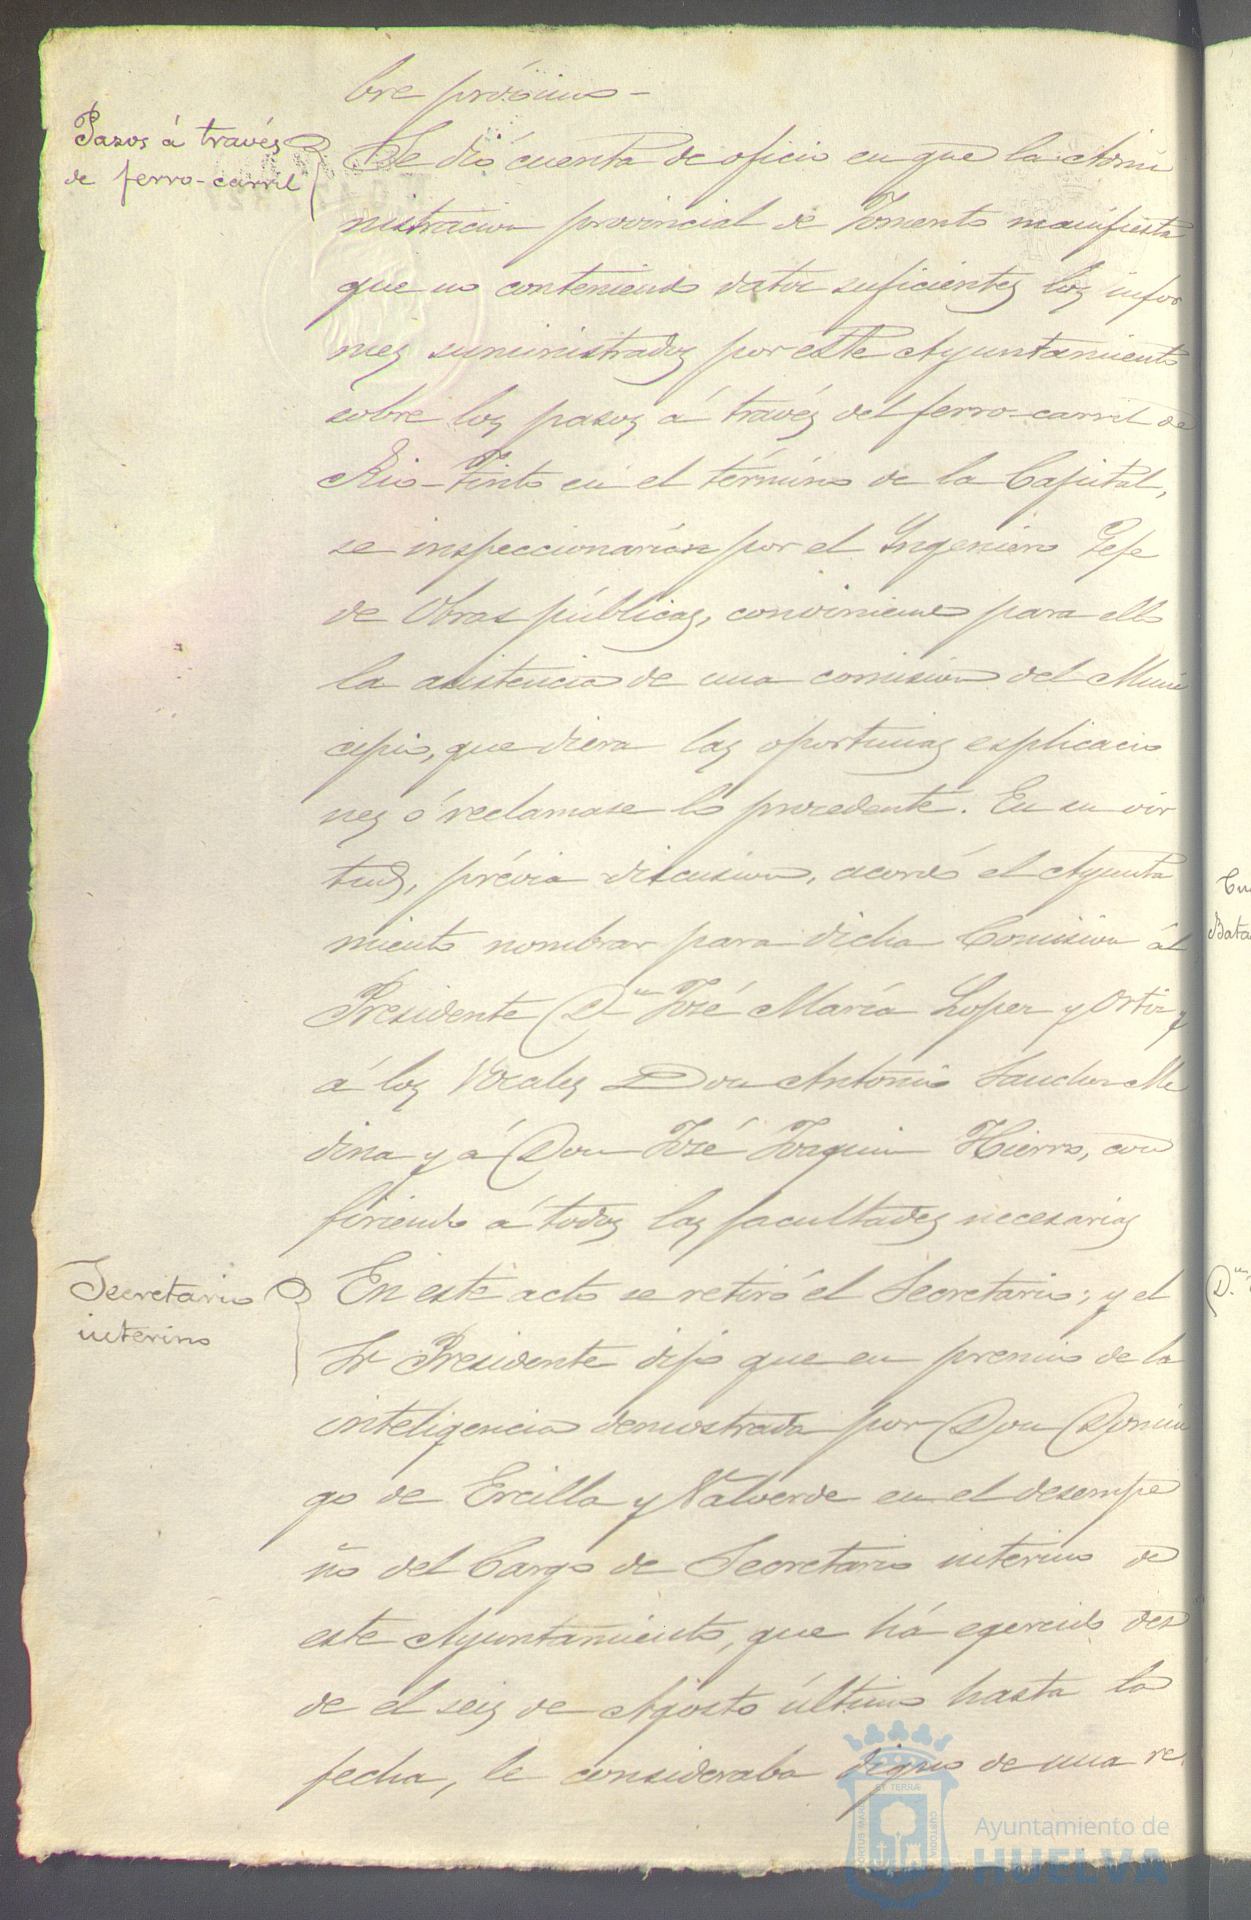 bre próximo -
Pasos á través
de ferro-carril
Se dió cuenta de oficio en que la Admi
nistracion provincial de Fomento manifiesta
que no conteniendo datos suficientes los infor
mes suministrados por este Ayuntamiento
sobre los pasos á través del ferro-carril de
Rio-Tinto en el término de la Capital,
se inspeccionarian por el Ingeniero Gefe
de Obras públicas, conviniendo para ello
la asistencia de una comision del Muni
cipio, que diera las oportunas esplicacio
nes ó reclamase lo procedente. En su vir
tud, prévia discusion, acordó el Ayunta
miento nombrar para dicha Comision al
Presidente Dn José María Lopez y Ortiz y
á los Vocales Don Antonio Sanchez Me
dina y á Don José Joaquin Hierro, con
firiendo á todos las facultades necesarias
Secretario
interino
En este acto se retiró el Secretario; y el
Sr Presidente dijo que en premio de la
inteligencia demostrada por Don Domin
go de Ercilla y Valverde en el desempe
ño del Cargo de Secretario interino de
este Ayuntamiento, que há egercido des
de el seis de Agosto último hasta la
fecha, le consideraba digno de una re
Ayuntamiento de
HUELVA